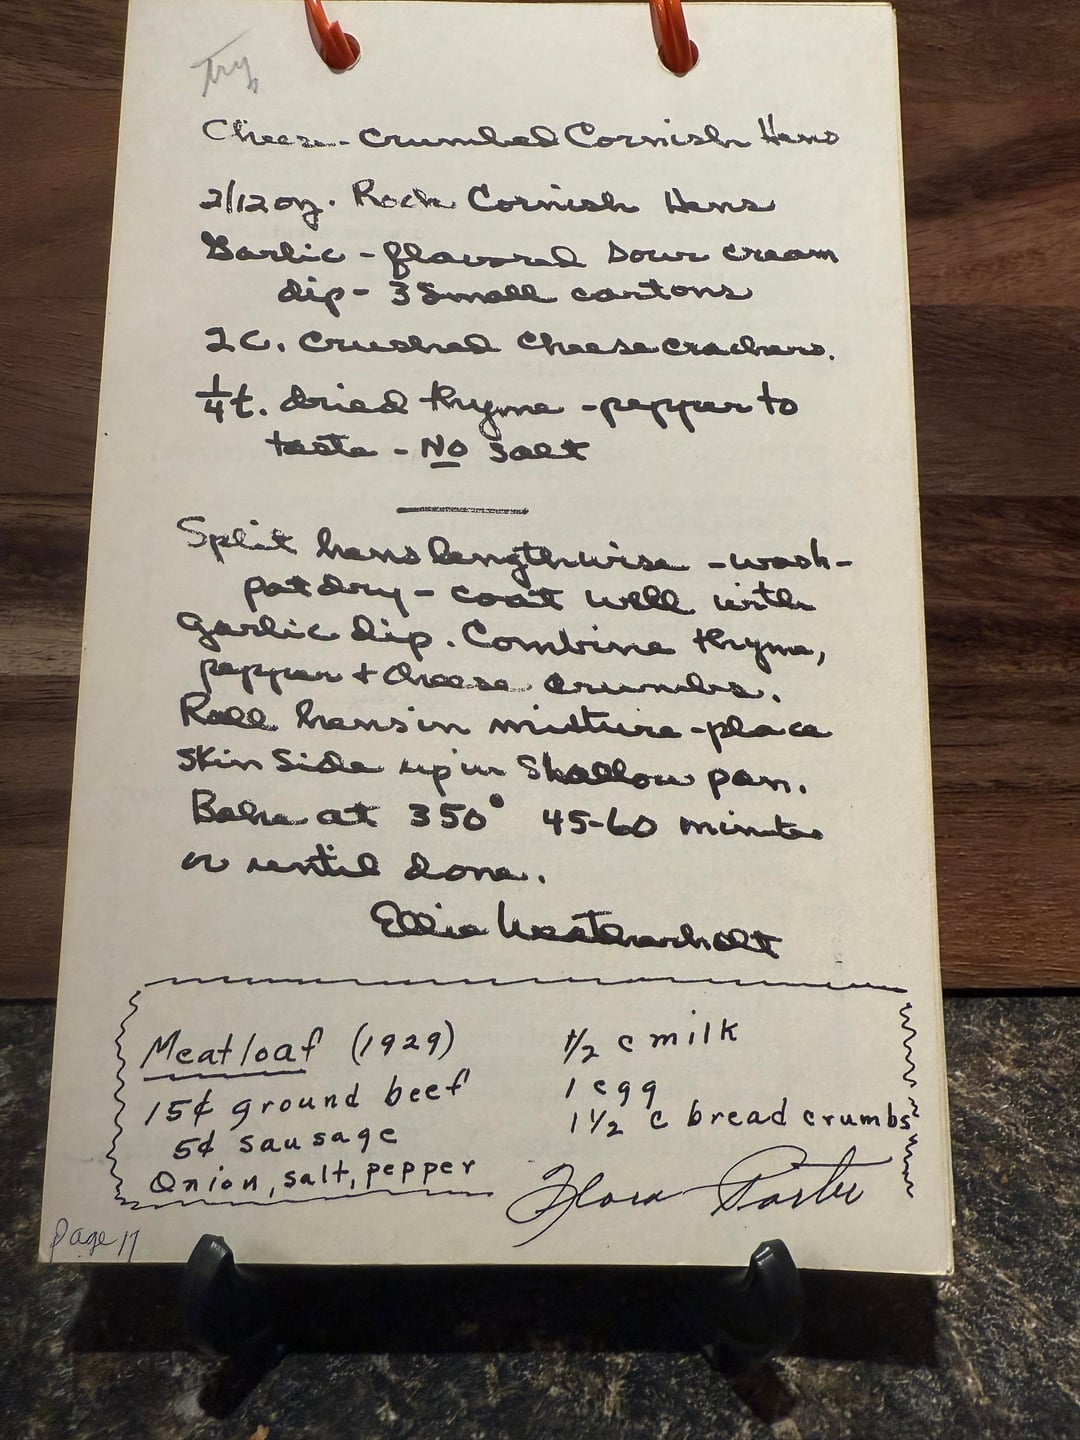 Try
Cheese-Crumbed Cornish Hens
2/12 oz. Rock Cornish Hens
Garlic-flavored sour cream
dip- 3 small cartons
2 C. crushed cheese crackers.
1/4 t. dried thyme - pepper to
taste - No salt
Split hens lengthwise - wash-
pat dry - coat well with
garlic dip. Combine thyme,
pepper + cheese crumbs.
Roll hens in mixture - place
skin side up in shallow pan.
Bake at 350° 45-60 minutes
or until done.
Ellie Weatherholt
Meatloaf (1929)
15¢ ground beef
5¢ sausage
Onion, salt, pepper
1/2 c milk
1 egg
1 1/2 c bread crumbs
Flora Porter
Page 17